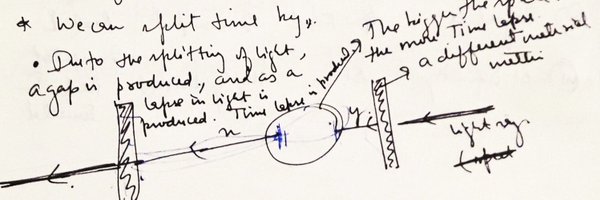 * We can split time by,.
• Due to the splitting of light,
a gap is produced, and as a
lapse in light is
produced. Time lapse is produced
The bigger the
the more Time lapse.
a different material
x
y
light ray.